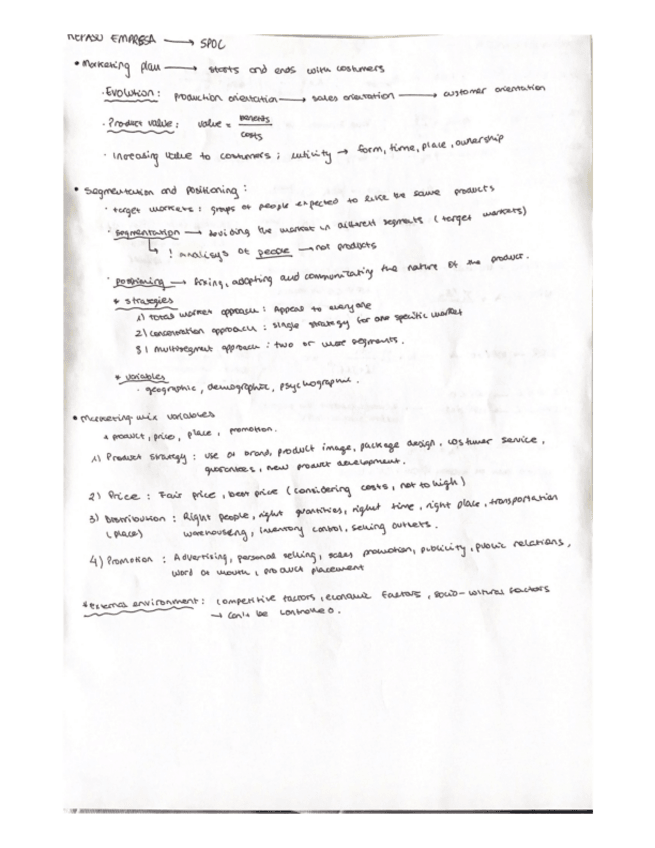 REPASO EMPRESA → SPOC
• Marketing plan → starts and ends with costumers
· Evolution: production orientation → sales orientation → customer orientation
· Product value: value = benefits / costs
· Increasing value to costumers; utility → form, time, place, ownership
• Segmentation and positioning:
· target markets: groups of people expected to like the same products
· segmentation → dividing the market in different segments (target markets)
↳ ! analisys of people → not products
· positioning → fixing, adapting and communicating the nature of the product.
* strategies
1) total market approach: Appeal to everyone
2) concentration approach: single strategy for one specific market
3) multisegment approach: two or more segments.
* variables
· geographic, demographic, psychographic.
• Marketing mix variables
* product, price, place, promotion.
1) Product strategy: use of brand, product image, package design, costumer service,
guarantees, new product development.
2) Price: Fair price, best price (considering costs, not to high)
3) Distribution: Right people, right quantities, right time, right place, transportation
(place) warehouseng, inventory control, selling outlets.
4) Promotion: Advertising, personal selling, sales promotion, publicity, public relations,
word of mouth, product placement
* external environment: competitive factors, economic factors, socio-cultural factors
→ can't be controlled.